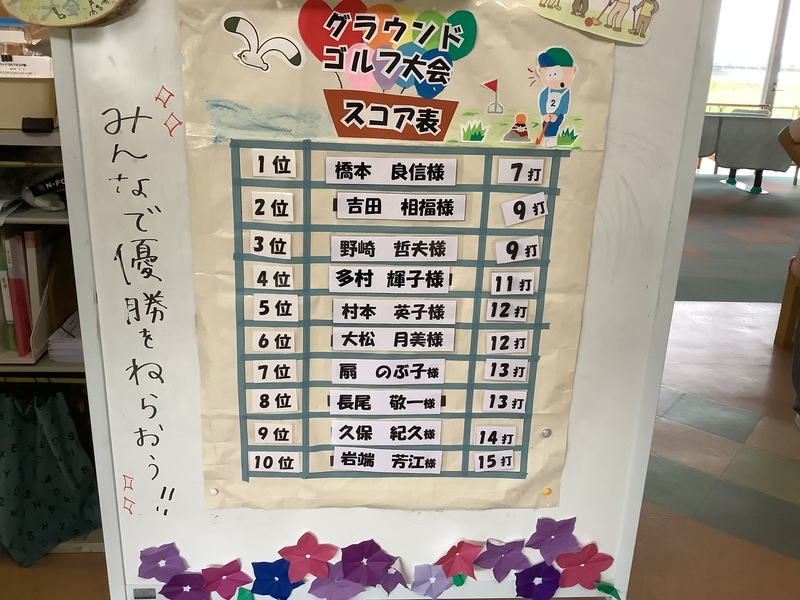 グラウンド
ゴルフ大会
スコア表
1位 橋本 良信様 7打
2位 吉田 相福様 9打
3位 野崎 哲夫様 9打
4位 多村 輝子様 11打
5位 村本 英子様 12打
6位 大松 月美様 12打
7位 扇 のぶ子様 13打
8位 長尾 敬一様 13打
9位 久保 紀久様 14打
10位 岩端 芳江様 15打
みんなで優勝をねらおう!!
2